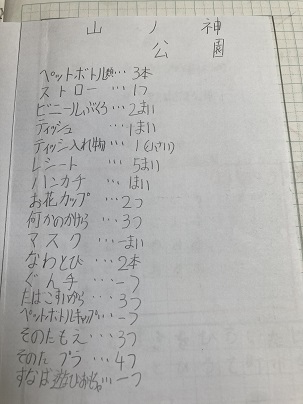 山ノ神
公園
ペットボトル類…3本
ストロー…1つ
ビニールぶくろ…2まい
ティッシュ…1まい
ティッシュ入れ物…1(小さい)
レシート…5まい
ハンカチ…1まい
お花カップ…2つ
何かのかけら…3つ
マスク…一まい
なわとび…2本
ぐん手…一つ
たばこすいがら…3つ
ペットボトルキャップ…一つ
そのたもえ…3つ
そのたプラ…4つ
すなば遊びおもちゃ…一つ